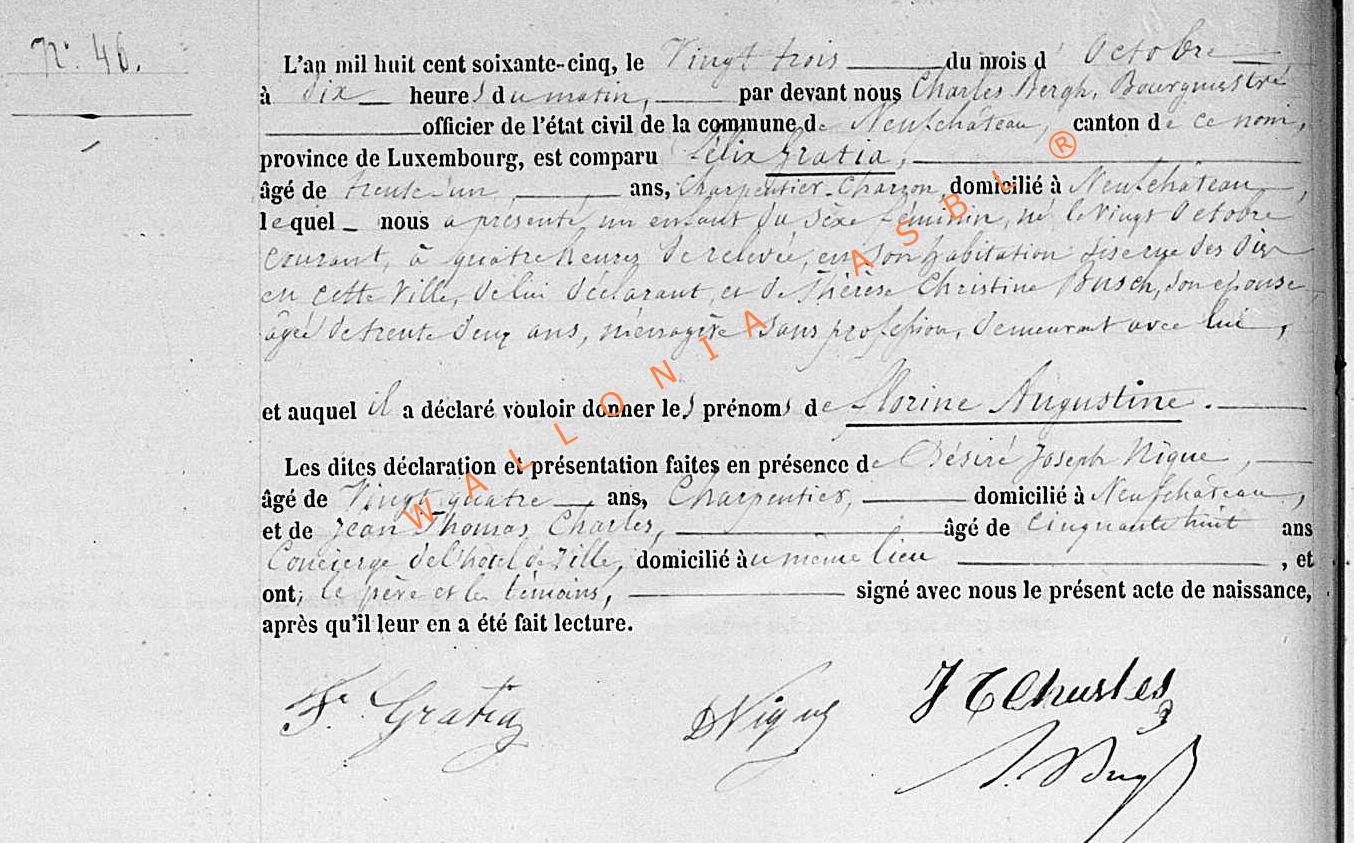 N° 46.
L'an mil huit cent soixante-cinq, le Vingt trois du mois d' Octobre
à dix heures du matin, par devant nous Charles Bergh, Bourgmestre
officier de l'état civil de la commune de Neufchâteau, canton de ce nom,
province de Luxembourg, est comparu Félix Gratia,
âgé de trente un ans, Charpentier-Charron, domicilié à Neufchâteau,
lequel nous a présenté un enfant du sèxe féminin, né le vingt Octobre
courant, à quatre heures de relevée, en son habitation sise rue des
en cette Ville, de lui déclarant, et de Thérèse Christine Busch, son épouse,
âgée de trente deux ans, ménagère sans profession, demeurant avec lui,
et auquel il a déclaré vouloir donner les prénoms de Florine Augustine.
Les dites déclaration et présentation faites en présence de Désiré Joseph Nique,
âgé de Vingt quatre ans, Charpentier, domicilié à Neufchâteau,
et de Jean Thomas Charles, âgé de Cinquante huit ans
Concierge de l'hotel de Ville, domicilié au même lieu, et
ont, le père et les témoins, signé avec nous le présent acte de naissance,
après qu'il leur en a été fait lecture.
F. Gratia
DNique
J T Charles
WALLONIA ASBL ®